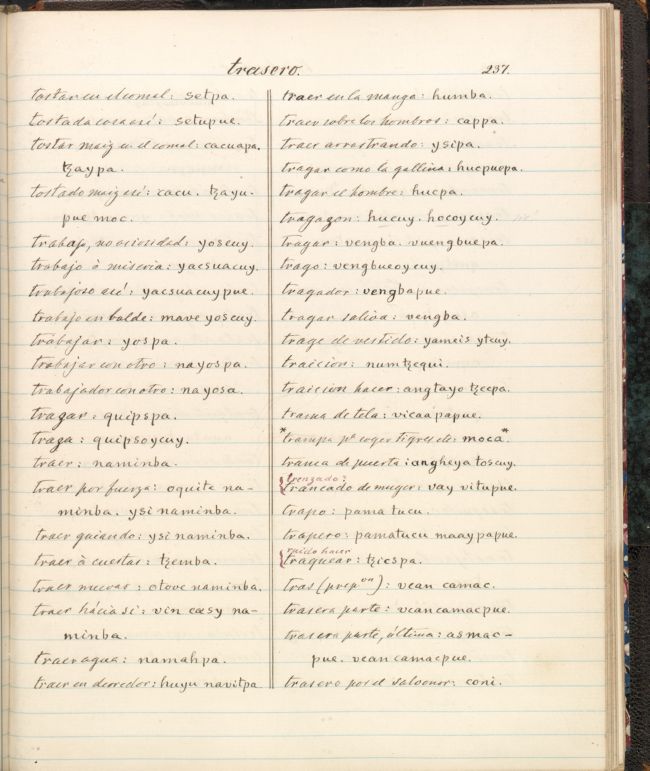 trasero.
237.
tostar en el comal: setpa.
tostada cosa así: setupue.
tostar maiz en el comal: cacuapa.
tzaypa.
tostado maiz así: cacu. tzayu-
pue moc.
trabajo, no ociosidad: yoscuy.
trabajo ò miseria: yacsuacuy.
trabajoso así: yacsuacuy pue.
trabajo en balde: mave yoscuy.
trabajar: yospa.
trabajar con otro: nayospa.
trabajador con otro: nayosa.
trazar: quipspa.
traza: quipsoycuy.
traer: naminba.
traer por fuerza: oquite na-
minba. ysi naminba.
traer guiando: ysi naminba.
traer à cuestas: tzemba.
traer nuevas: otove naminba.
traer hácia sí: vin cœsy na-
minba.
traer agua: namahpa.
traer en derredor: huyu navitpa
traer en la manga: humba.
traer sobre los hombros: cappa.
traer arrastrando: ysipa.
tragar como la gallina: hucpuepa.
tragar el hombre: hucpa.
tragazon: hucuy. hocoycuy.
tragar: vengba. vuengbuepa.
trago: vengbueoycuy.
tragador: vengbapue.
tragar saliva: vengba.
trage de vestido: yameis ytcuy.
traicion: numtzequi.
traicion hacer: angtayo tzecpa.
trama de tela: vicaapapue.
*trampa pa coger tigres etc: moca*.
tranca de puerta: angheya toscuy.
trenzado:
{trancado de muger: vay vitupue.
trapo: pama tucu.
trapero: pamatucu maaypapue.
ruido hacer
{traquear: tzicspa.
tras (prepon): vcan camac.
trasera parte: vcancamacpue.
trasera parte, última: asmac-
pue. vcancamacpue.
trasero por el salvonor: coni.